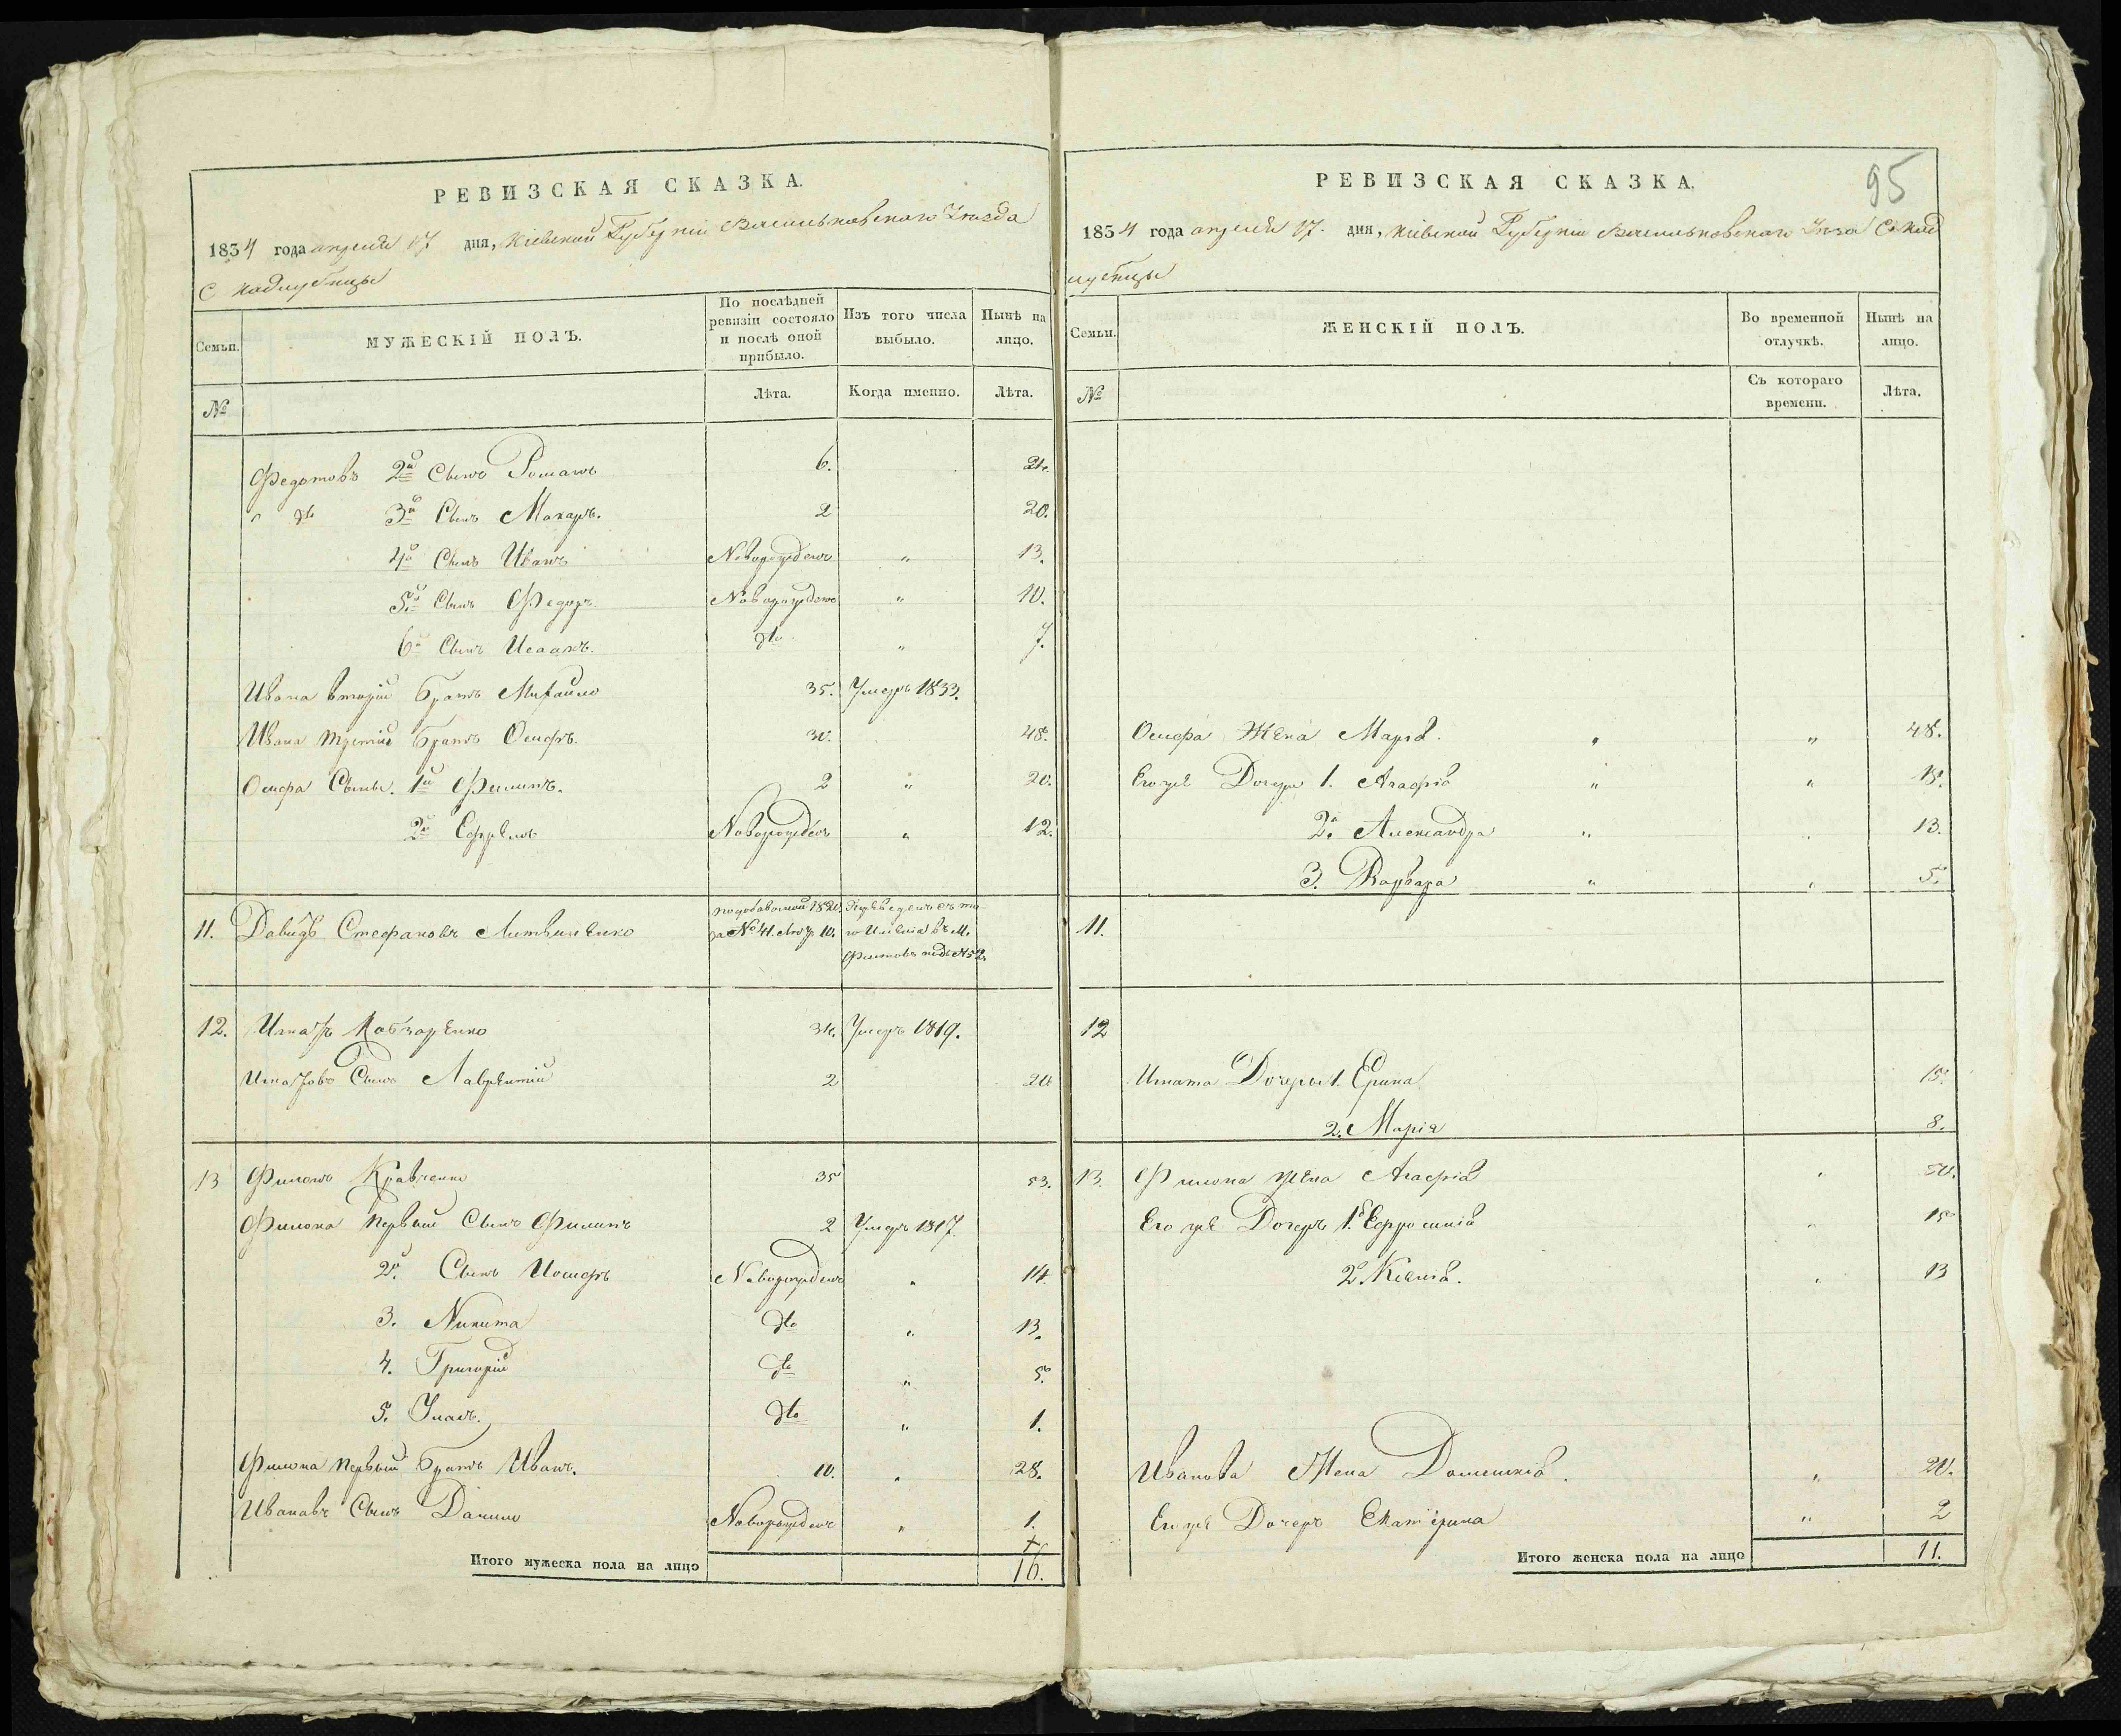 РЕВИЗСКАЯ СКАЗКА.
1834 года апреля 17 дня, Кіевской Губерніи Васильковскаго Уезда
с Кадлубицы
Семьи.
МУЖЕСКІЙ ПОЛЪ.
По послѣдней ревизіи состояло и послѣ оной прибыло.
Изъ того числа выбыло.
Нынѣ на лицо.
№
Лѣта.
Когда именно.
Лѣта.
Федотовъ 2й Сынъ Романъ 6. 24.
" дто 3й Сынъ Макаръ. 2 20.
4й Сынъ Иванъ Новорожденъ " 13.
5й Сынъ Федоръ Новорожденъ " 10.
6й Сынъ Исаакъ. дто " 7.
Ивана вторій Братъ Михайло 35. Умеръ 1833.
Ивана третій Братъ Осифъ. 30. 48.
Осифа Сыны. 1й Филипъ. 2 " 20.
2й Ефремъ Новорожденъ " 12.
11. Давидъ Стефановъ Литвиненко
№ 41.
12. Игнатъ Кобзаренко 31. Умеръ 1819.
Игнатовъ Сынъ Лаврентій 2 20
13 Филонъ Кравченко 35 53.
Филона Первый Сынъ Филипъ 2 Умеръ 1817.
2й Сынъ Иосифъ Новорожденъ " 14.
3. Никита дто " 13.
4. Григорій дто " 5.
5. Улас. дто " 1.
Филона Первый Братъ Иванъ. 10. " 28.
Ивановъ Сынъ Данило Новорожденъ " 1.
Итого мужеска пола на лицо 16.
РЕВИЗСКАЯ СКАЗКА.
95
1834 года апреля 17. дня, Кіевской Губерніи Васильковскаго Уезда С. Кад
лубицы
Семьи.
ЖЕНСКІЙ ПОЛЪ.
Во временной отлучкѣ.
Нынѣ на лицо.
№
Съ котораго времени.
Лѣта.
Осифа Жена Марія. " " 48.
Его же Дочери 1. Агафія " " 18.
2я. Александра " " 13.
3. Варвара " " 5.
11.
12
Игната Дочеры 1. Ерина 15.
2. Марія 8.
13. Филона жена Агафія " 50.
Его же Дочеръ 1я Ефросинія " 15
2я. Ксенія. " 13
Иванова Жена Домникія. " 20.
Его же Дочеръ Екатерина " 2
Итого женска пола на лицо 11.